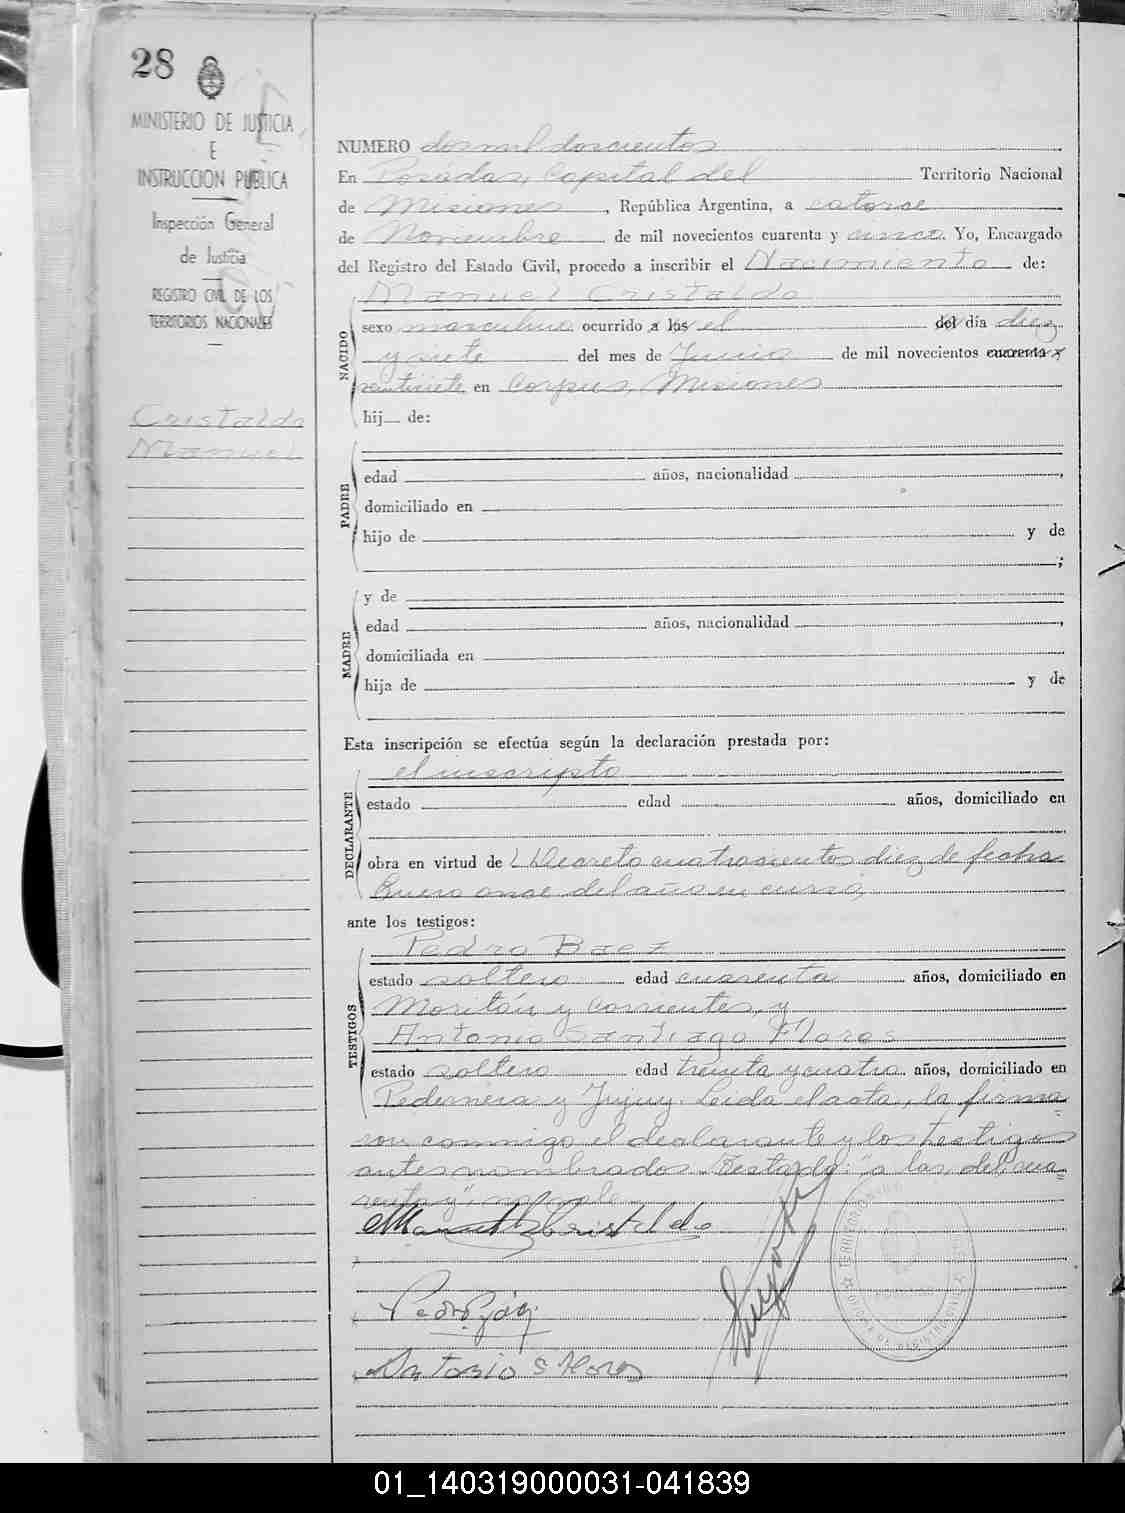 28
MINISTERIO DE JUSTICIA
E
INSTRUCCION PUBLICA
Inspección General
de Justicia
REGISTRO CIVIL DE LOS
TERRITORIOS NACIONALES
Cristaldo
Manuel
NUMERO dos mil doscientos
En Posadas, Capital del Territorio Nacional
de Misiones, República Argentina, a catorce
de Noviembre de mil novecientos cuarenta y cinco. Yo, Encargado
del Registro del Estado Civil, procedo a inscribir el Nacimiento de:
NACIDO
Manuel Cristaldo
sexo masculino ocurrido a las el del día diez
y siete del mes de Junio de mil novecientos cuarenta y
veintisiete en Corpus, Misiones
hij de:
PADRE
edad años, nacionalidad ,
domiciliado en
hijo de y de
;
MADRE
y de
edad años, nacionalidad ,
domiciliada en
hija de y de
Esta inscripción se efectúa según la declaración prestada por:
DECLARANTE
el inscripto
estado edad años, domiciliado en
obra en virtud de l Decreto cuatrocientos diez de fecha
Enero once del año en curso,
ante los testigos:
TESTIGOS
Pedro Baez
estado soltero edad cuarenta años, domiciliado en
Moritán y Corrientes, y
Antonio Santiago Flores
estado soltero edad treinta y cuatro años, domiciliado en
Pedernera y Jujuy. Leida el acta, la firma
con conmigo el declarante y los testigos
antes nombrados. Testado: "a las, del, cua
renta y", no vale.
Manuel Cristaldo
Pedro Báez
Antonio S Flores
01_140319000031-041839